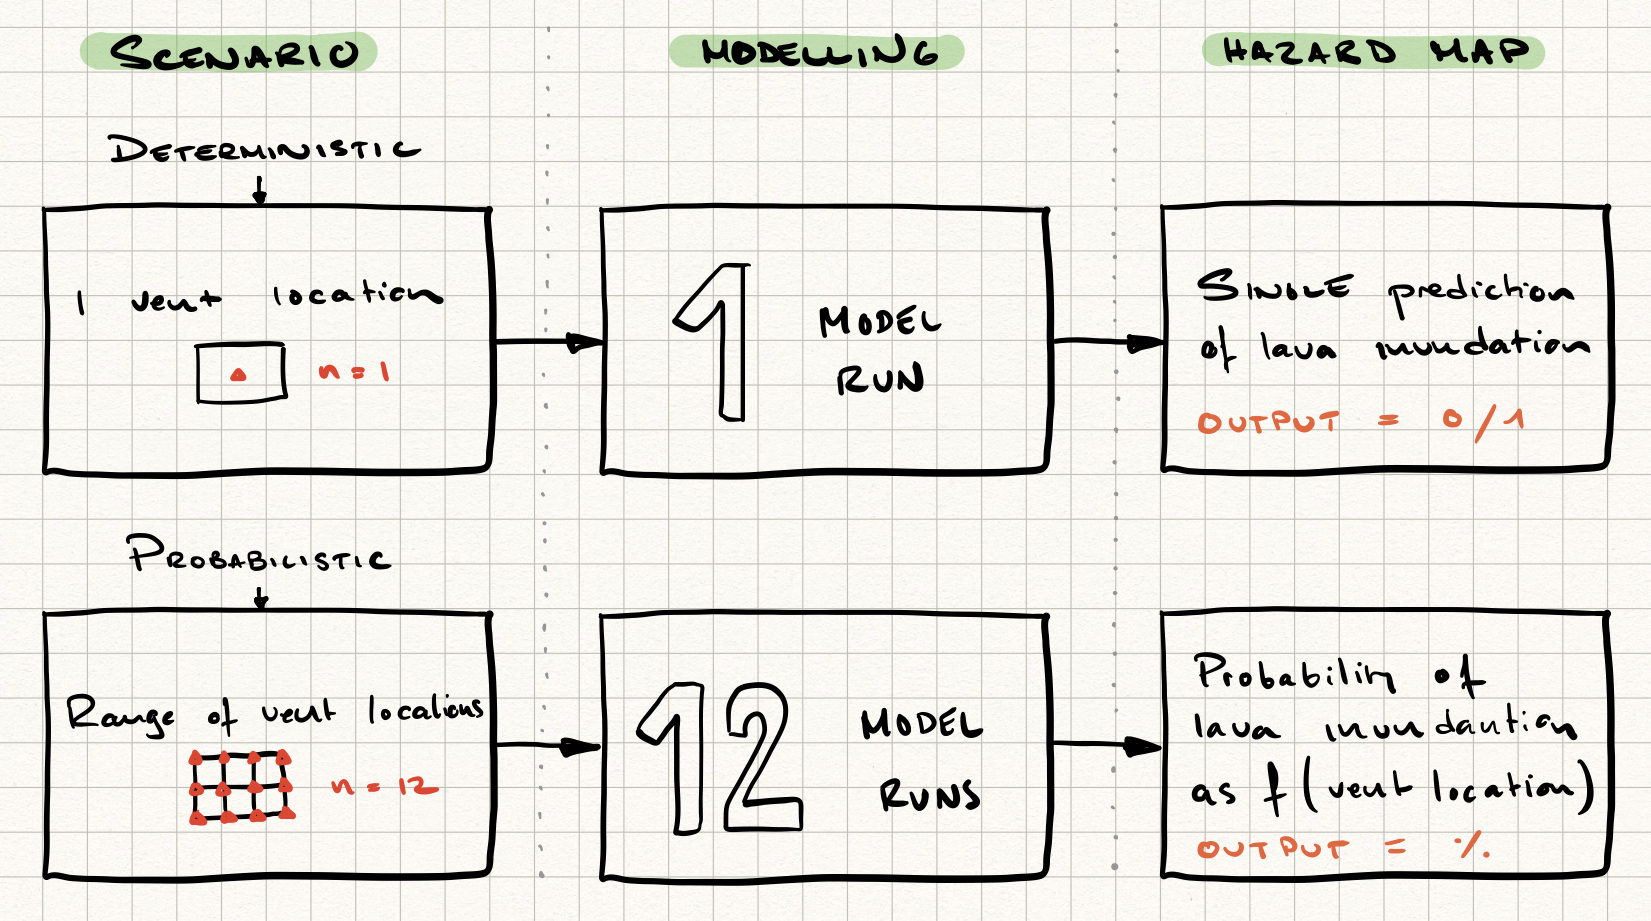 SCENARIO
MODELLING
HAZARD MAP
DETERMINISTIC
1 vent location
n = 1
1
MODEL
RUN
SINGLE prediction
of lava inundation
OUTPUT = 0/1
PROBABILISTIC
Range of vent locations
n = 12
12
MODEL
RUNS
Probability of
lava inundantion
as f (vent location)
OUTPUT = %